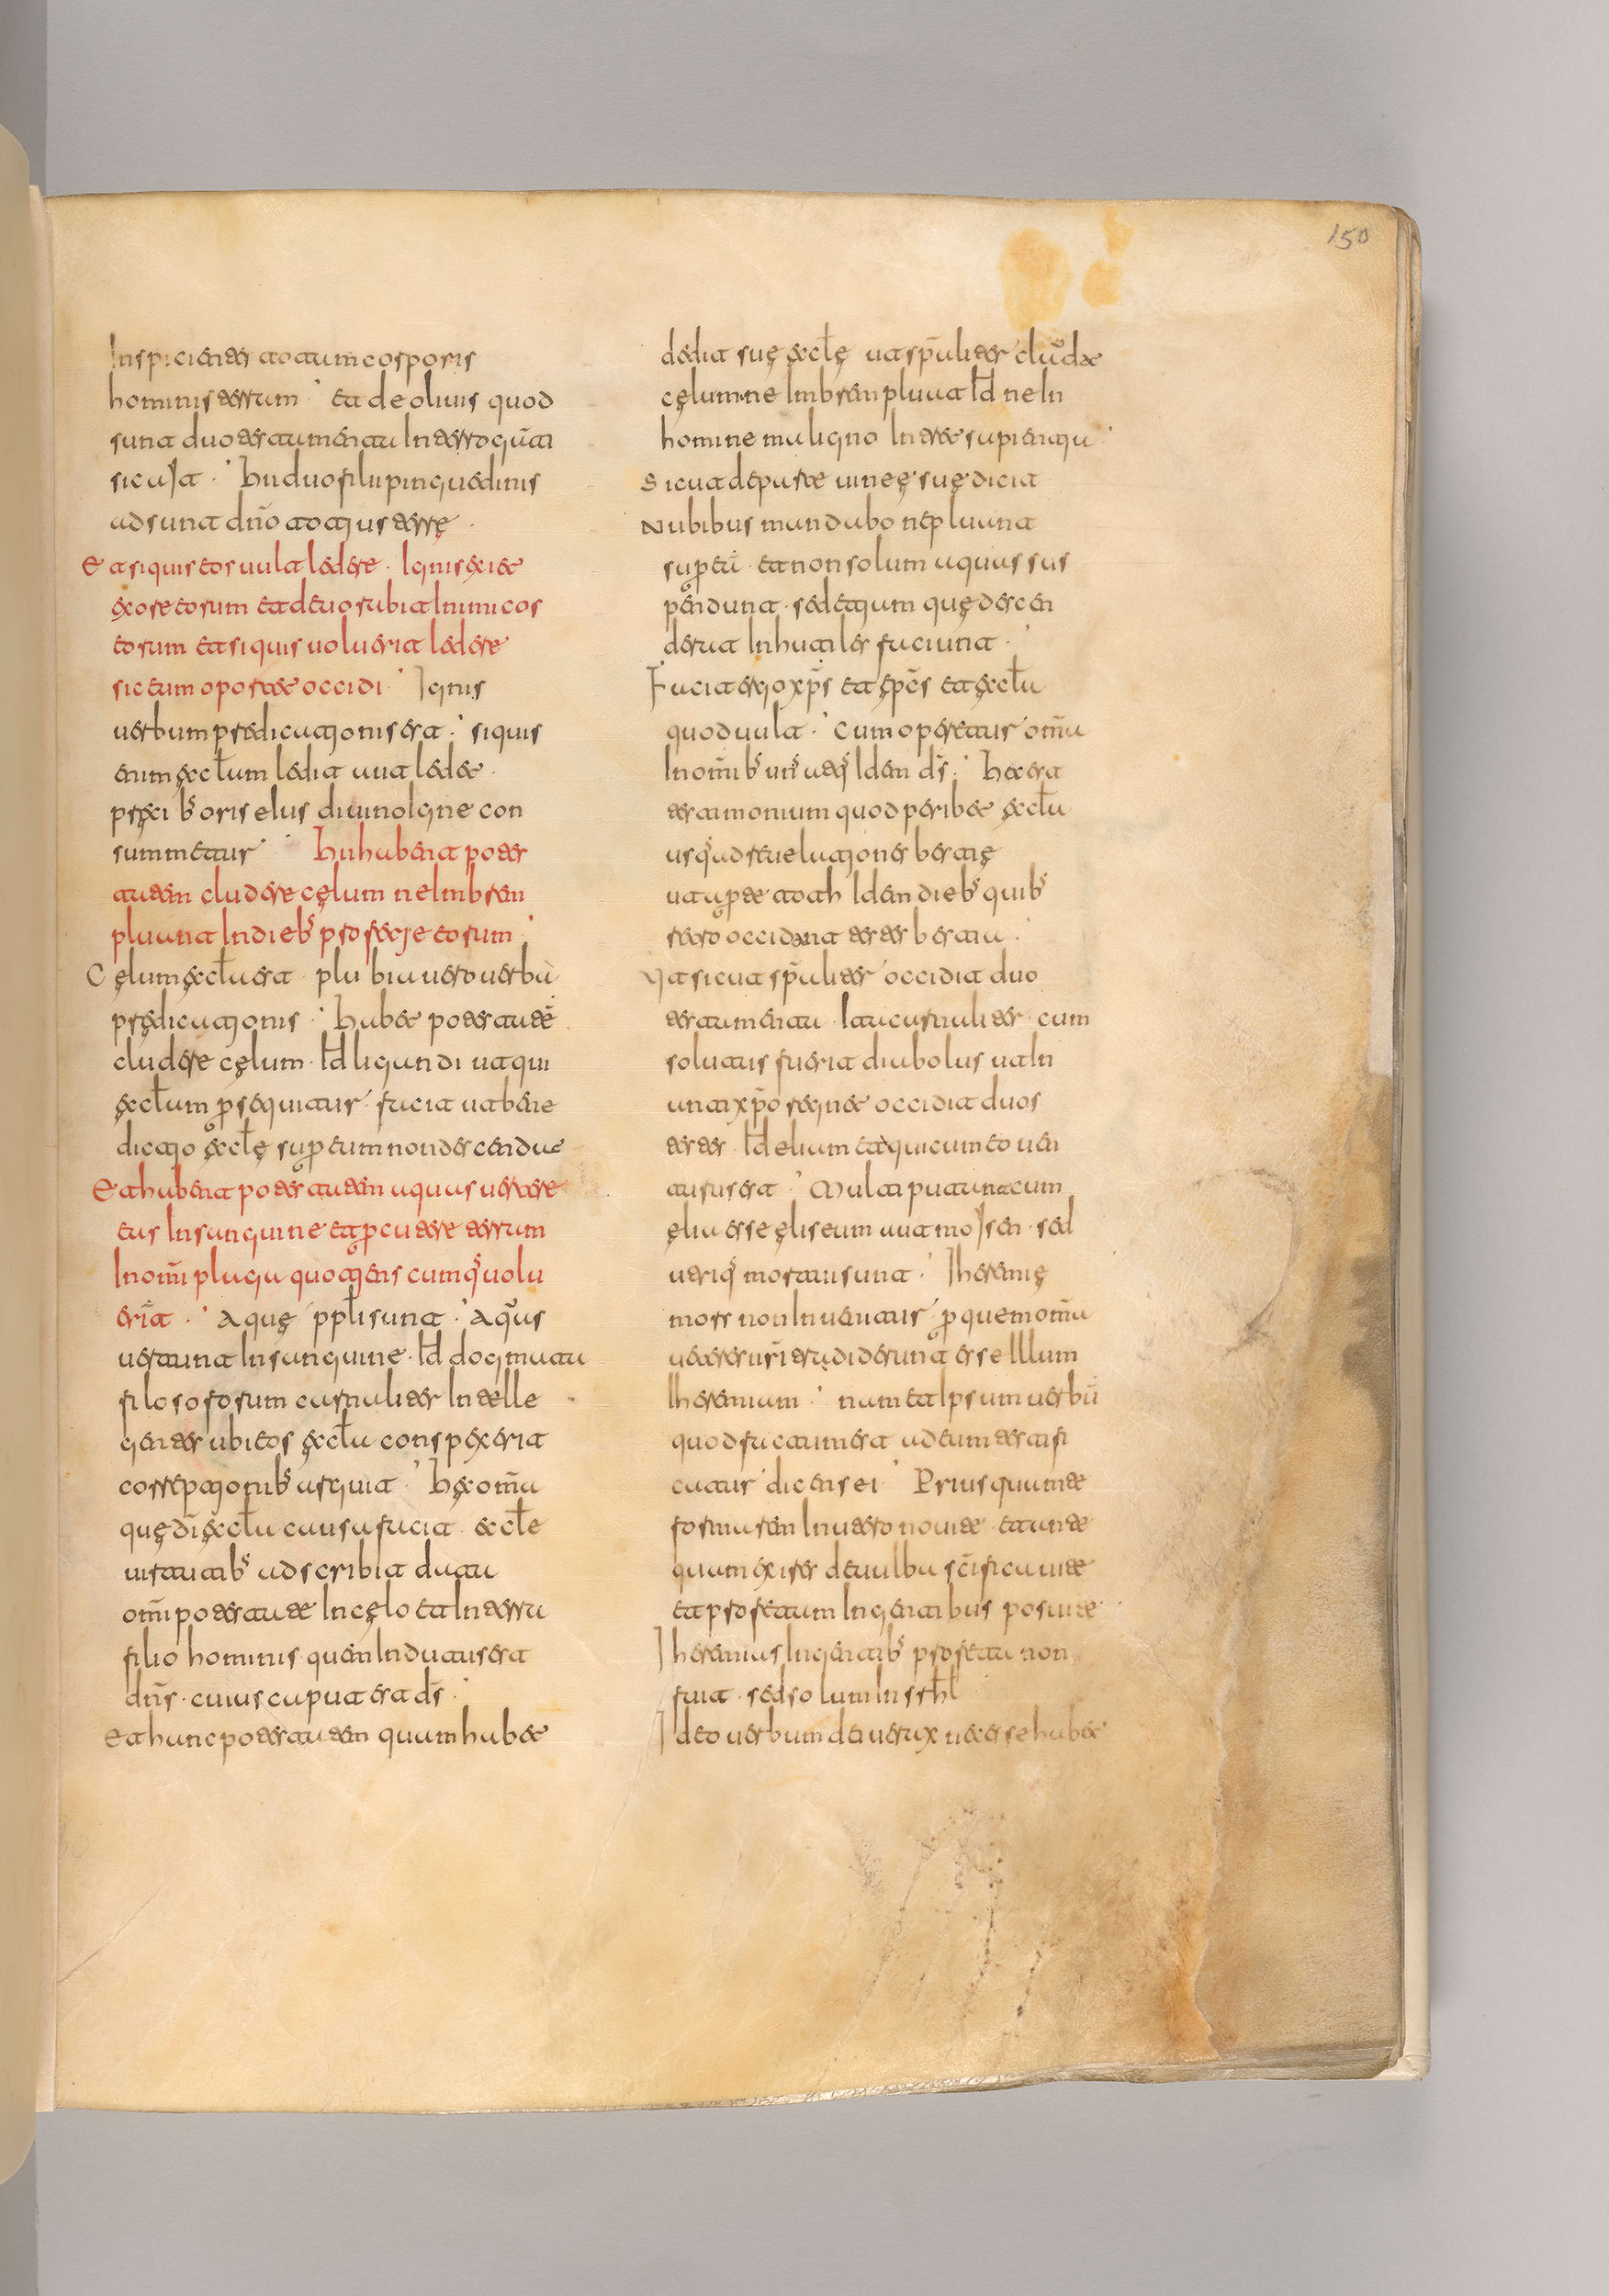 150
Inspicientes totum corporis
hominis terrum · et de olivis quod
sunt duo testamenta In terrogati
sic ait · hii duo filii pinguedinis
adsunt dño totius terrę ·
Et siquis eos uult ledere · Ignis exiet
exore eorum et deuorabit Inimicos
eorum et si quis uoluerit ledere
sic eum oportet occidi · Ignis
uerbum predicationis est · siquis
enim ęcłam ledit aut ledet ·
pręcibs oris eius diuino Igne con
summetur · hii habent potes
tatem cludere cęlum ne Imbrem
pluuat In diebs profetię eorum ·
Cęlum ęcła est · plubia uero uerbū
prędicationis · habet potestatē
cludere cęlum · Id ligandi ut qui
ęcłam persequitur · faciat ut bene
dictio ęcłę super eum non descendat
Et habent potestatem aquas uertere
eas In sanguine et percutere terram
In omi plaga quotiens cumqe uolu
erīt · Aquę ppłi sunt · Aquas
uertunt In sanguine · Id dogmata
filosoforum carnaliter Intelle
gentes ubi eos ęcła conspexerit
correptionibs arguit · hęc omīa
quę dī ęcła causa facit · ęcłe
uirtutibs adscribit data
omīpotestate In cęlo et In terra
filio hominis quem Induturus est
dñs · cuius caput est dš ·
Et hunc potestatem quam habet
dedit suę ęcłę ut spiritaliter cludat
cęlum ne Imbrem pluuat Id ne In
homine maligno Intret sapientia ·
Sicut de parte uineę suę dicit
Nubibus mandabo ne pluant
super eā · et non solum aquas sus
pendunt · sed etiam quę descen
derat Inhutiles faciunt ·
Facit ergo xps et spcs et ęcła
quod uult · cum operetur omīa
In omībs unus atqe Idem dš · hec est
testimonium quod peribet ęcła
usqe ad reuelationes bestię
ut aperte toth Idem diebs quibs
retro occidunt testes bestia ·
Nt sicut spiritaliter occidit duo
testamenta · Ita et carnaliter · cum
solutus fuerit diabolus ut In
antixpo regnet occidit duos
testes · Id eliam et qui cum eo uen
turus est · Multi putant cum
elia esse eliseum aut moisen · sed
uterqe mortui sunt · Iheremię
mors non Inuenitur · per que m omīa
ueteres nri tradiderunt esse Illum
Iheremiam · nam et Ipsum uerbū
quod factum est ad eum testifi
catur · dicens ei · Prius quam te
formarem In utero noui te · et ante
quam exires deuulba scīficaui te
et profetam In gentibus posui te ·
Iheremias In gentibs profeta non
fuit · sed solum In srhl ·
Ideo uerbum dei uerax necesse habet